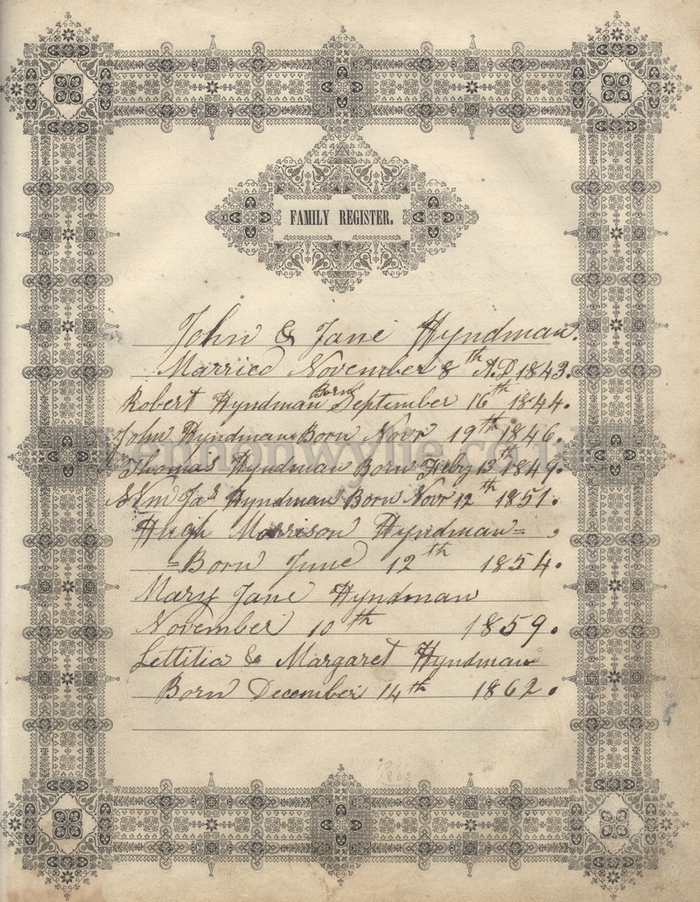 FAMILY REGISTER.
John & Jane Hyndman.
Married November 8th A.D 1843.
Robert Hyndman Born September 16th 1844.
John Hyndman Born Novr 19th 1846.
Thomas Hyndman Born Feby 13th 1849.
Wm Jas Hyndman Born Novr 12th 1851.
Hugh Morrison Hyndman=
=Born June 12th 1854.
Mary Jane Hyndman
November 10th 1859.
Lettitia & Margaret Hyndman
Born December 14th 1862.